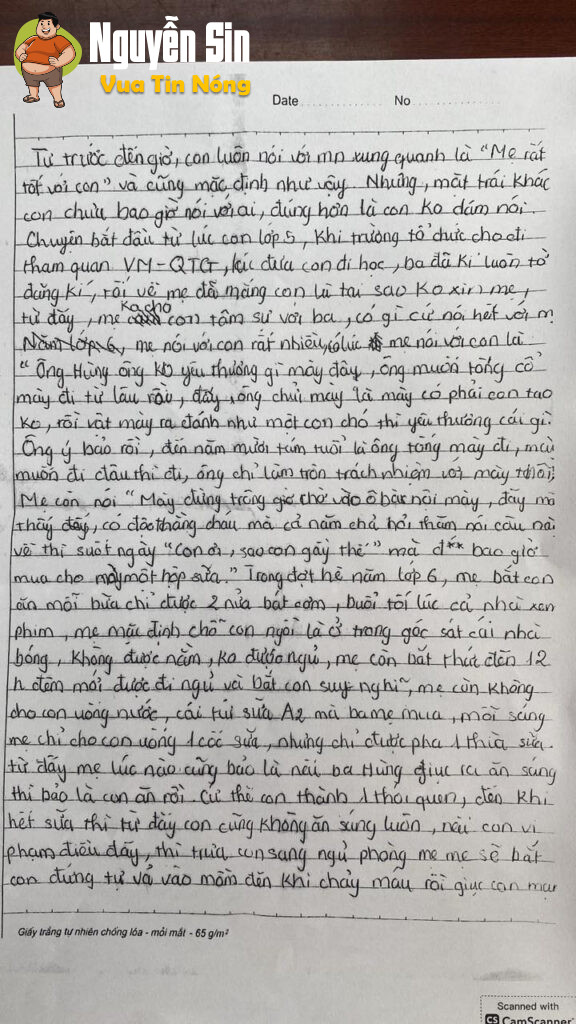 Nguyễn Sin
Vua Tin Nóng
Date No
Từ trước đến giờ, con luôn nói với mn xung quanh là "Mẹ rất
tốt với con" và cũng mặc định như vậy. Nhưng, mặt trái khác
con chưa bao giờ nói với ai, đúng hơn là con ko dám nói.
Chuyện bắt đầu từ lúc con lớp 5, khi trường tổ chức cho đi
tham quan VM-QTG, lúc đưa con đi học, ba đã kí luôn tờ
đăng kí, rồi về mẹ đã mắng con là tại sao ko xin mẹ,
từ đấy, mẹ ko cho con tâm sự với ba, có gì cứ nói hết với m
Năm lớp 6, mẹ nói với con rất nhiều, có lúc mẹ nói với con là
"Ông Hùng ông ko yêu thương gì mày đâu, ông muốn tống cổ
mày đi từ lâu rồi, đấy, ông chửi mày là mày có phải con tao
ko, rồi vặt mày ra đánh như một con chó thì yêu thương cái gì.
Ông ý bảo rồi, đến năm mười tám tuổi là ông tống mày đi, mày
muốn đi đâu thì đi, ông chỉ làm tròn trách nhiệm với mày thôi"
Mẹ còn nói "Mày đừng trông giờ chờ vào ô bà nội mày, đấy mà
thấy đấy, có đứa thằng cháu mà cả năm chả hỏi thăm nói câu nào
về thì suốt ngày "con ơi, sao con gầy thế" mà đ** bao giờ
mua cho mày một hộp sữa." Trong đợt hè năm lớp 6, mẹ bắt con
ăn mỗi bữa chỉ được 2 nửa bát cơm, buổi tối lúc cả nhà xem
phim, mẹ mặc định chỗ con ngồi là ở trong góc sát cái nhà
bóng, không được nằm, ko được ngủ, mẹ còn bắt thức đến 12
h đêm mới được đi ngủ và bắt con suy nghĩ, mẹ còn không
cho con uống nước, cái túi sữa A2 mà ba mẹ mua, mỗi sáng
mẹ chỉ cho con uống 1 cốc sữa, nhưng chỉ được pha 1 thìa sữa.
từ đấy mẹ lúc nào cũng bảo là nếu ba Hùng giục ra ăn sáng
thì bảo là con ăn rồi. Cứ thế con thành 1 thói quen, đến khi
hết sữa thì từ đấy con cũng không ăn sáng luôn, nếu con vi
phạm điều đấy, thì trưa con sang ngủ phòng mẹ mẹ sẽ bắt
con đứng tự vả vào mồm đến khi chảy máu rồi giục con
Giấy trắng tự nhiên chống lóa - mỏi mắt - 65 g/m²
Scanned with
CS CamScanner